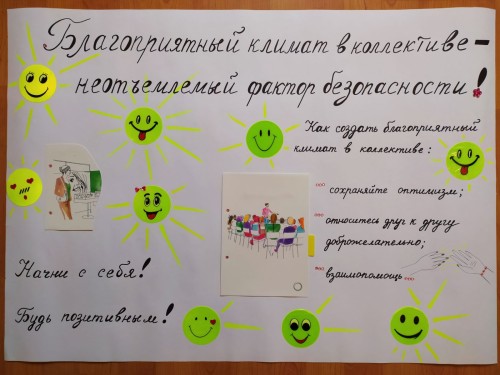 Благоприятный климат в коллективе -
неотъемлемый фактор безопасности!
Как создать благоприятный
климат в коллективе:
сохраняйте оптимизм;
относитесь друг к другу
доброжелательно;
взаимопомощь
Начни с себя!
Будь позитивным!